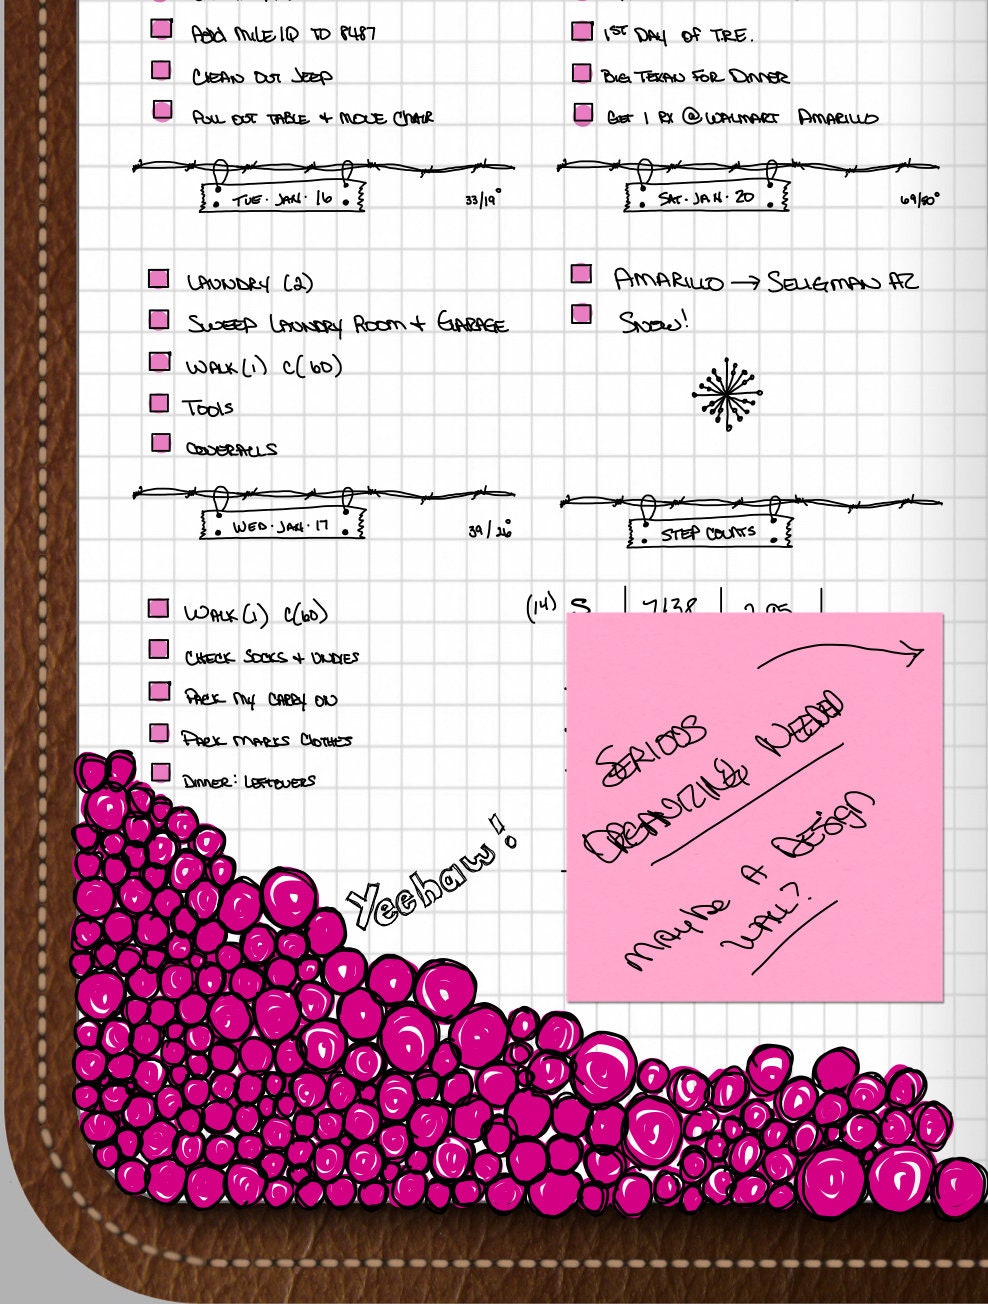 Add Mile IQ to 8487
Clean out Jeep
Pull out table + move chair
Tue. Jan. 16
33/19°
Laundry (2)
Sweep Laundry Room + Garage
Walk (1) C(60)
Tools
Coveralls
Wed. Jan. 17
39/26°
Walk (1) C(60)
Check socks + undies
Pack my carry on
Pack Marks clothes
Dinner: Leftovers
Yeehaw!
1st Day of T.R.E.
Big Texan for Dinner
Get 1 Rx @ Walmart Amarillo
Sat. Jan. 20
69/50°
Amarillo → Seligman AZ
Snow!
Step Counts
(14) S 7138 2.95
Serious
Organizing Needed
Maybe a Design
Wall?